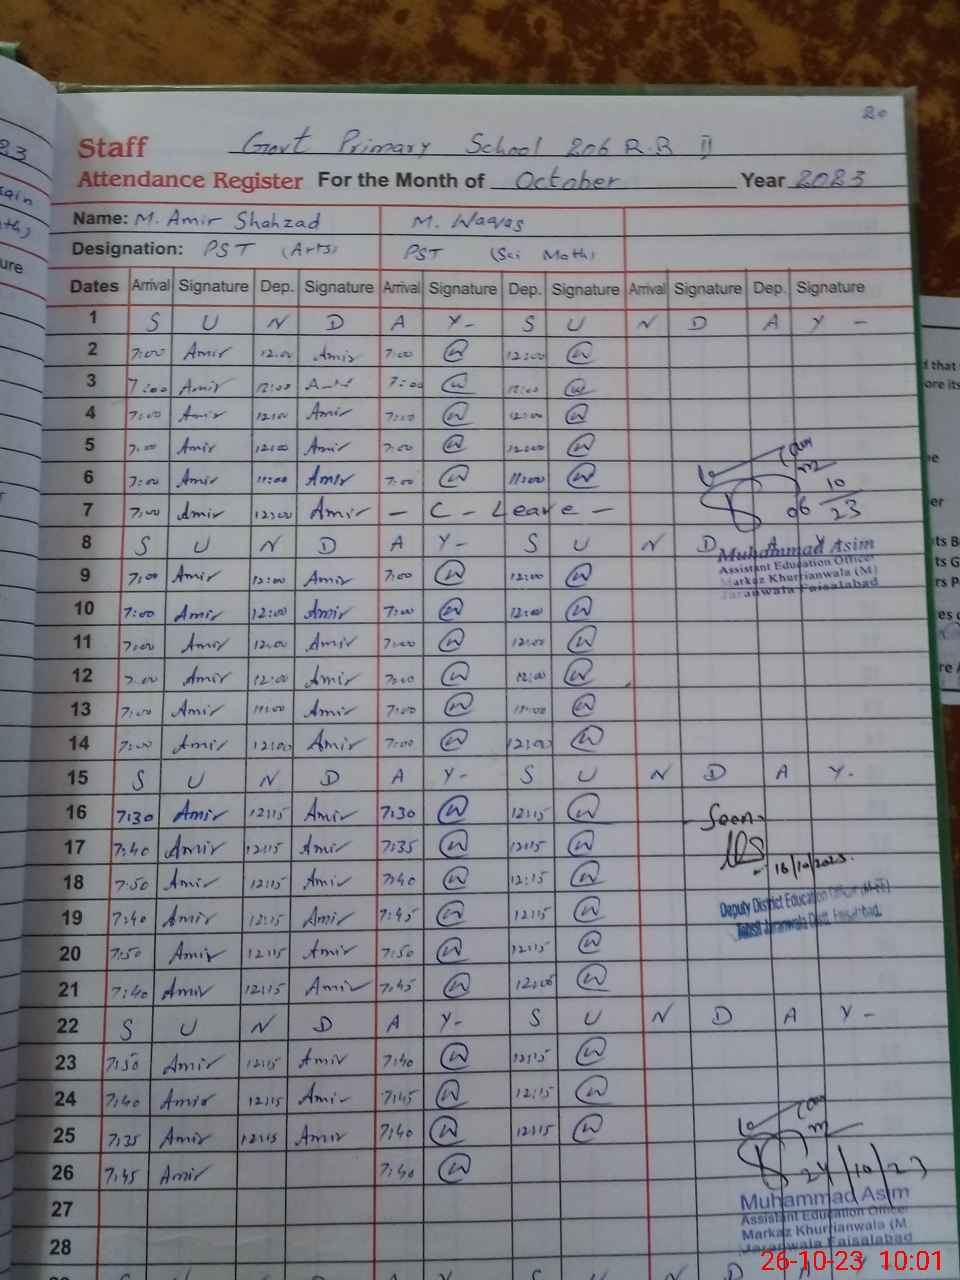 20
Staff Govt Primary School 206 R.B II
Attendance Register For the Month of October Year 2023
Name: M. Amir Shahzad M. Waqas
Designation: PST (Arts) PST (Sci Math)
Dates Arrival Signature Dep. Signature Arrival Signature Dep. Signature Arrival Signature Dep. Signature
1 S U N D A Y - S U N D A Y -
2 7:00 Amir 12:00 Amir 7:00 W 12:00 W
3 7:00 Amir 12:00 Amir 7:00 W 12:00 W
4 7:00 Amir 12:00 Amir 7:00 W 12:00 W
5 7:00 Amir 12:00 Amir 7:00 W 12:00 W
6 7:00 Amir 11:00 Amir 7:00 W 11:00 W
7 7:00 Amir 12:00 Amir - C - Leave - 06 10/23
8 S U N D A Y - S U N D A Y
Muhammad Asim
Assistant Education Officer
Markaz Khurrianwala (M)
Jaranwala Faisalabad
9 7:00 Amir 12:00 Amir 7:00 W 12:00 W
10 7:00 Amir 12:00 Amir 7:00 W 12:00 W
11 7:00 Amir 12:00 Amir 7:00 W 12:00 W
12 7:00 Amir 12:00 Amir 7:00 W 12:00 W
13 7:00 Amir 11:00 Amir 7:00 W 11:00 W
14 7:00 Amir 12:00 Amir 7:00 W 12:00 W
15 S U N D A Y - S U N D A Y -
16 7:30 Amir 12:15 Amir 7:30 W 12:15 W Seen
17 7:40 Amir 12:15 Amir 7:35 W 12:15 W 16/10/2023.
18 7:50 Amir 12:15 Amir 7:40 W 12:15 W
Deputy District Education Officer (M-EE)
Tehsil Jaranwala Distt. Faisalabad.
19 7:40 Amir 12:15 Amir 7:45 W 12:15 W
20 7:50 Amir 12:15 Amir 7:50 W 12:15 W
21 7:40 Amir 12:15 Amir 7:45 W W
22 S U N D A Y - S U N D A Y -
23 7:50 Amir 12:15 Amir 7:40 W 12:15 W
24 7:40 Amir 12:15 Amir 7:45 W 12:15 W
25 7:35 Amir 12:15 Amir 7:40 W 12:15 W
26 7:45 Amir 7:40 W 24/10/23
27
Muhammad Asim
Assistant Education Officer
Markaz Khurrianwala (M
Jaranwala Faisalabad
28
26-10-23 10:01